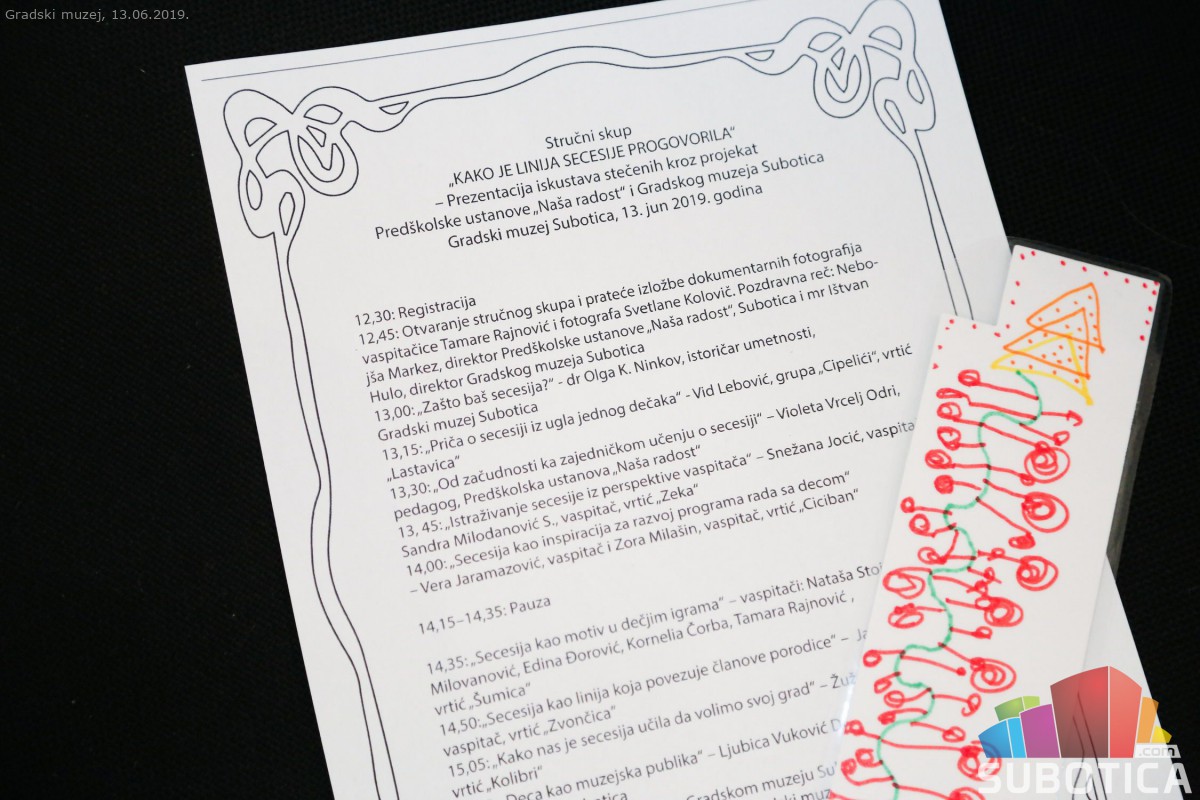 Gradski muzej, 13.06.2019.
Stručni skup
„KAKO JE LINIJA SECESIJE PROGOVORILA“
– Prezentacija iskustava stečenih kroz projekat
Predškolske ustanove „Naša radost“ i Gradskog muzeja Subotica
Gradski muzej Subotica, 13. jun 2019. godina
12,30: Registracija
12,45: Otvaranje stručnog skupa i prateće izložbe dokumentarnih fotografija
vaspitačice Tamare Rajnović i fotografa Svetlane Kolović. Pozdravna reč: Nebo-
jša Markez, direktor Predškolske ustanove „Naša radost“, Subotica i mr Ištvan
Hulo, direktor Gradskog muzeja Subotica
13,00: „Zašto baš secesija?“ - dr Olga K. Ninkov, istoričar umetnosti,
Gradski muzej Subotica
13,15: „Priča o secesiji iz ugla jednog dečaka“ - Vid Lebović, grupa „Cipelići“, vrtić
„Lastavica“
13,30: „Od začudnosti ka zajedničkom učenju o secesiji“ – Violeta Vrcelj Odri,
pedagog, Predškolska ustanova „Naša radost“
13, 45: „Istraživanje secesije iz perspektive vaspitača“ – Snežana Jocić,
Sandra Milodanović S., vaspitač, vrtić „Zeka“
14,00: „Secesija kao inspiracija za razvoj programa rada sa decom“
– Vera Jaramazović, vaspitač i Zora Milašin, vaspitač, vrtić „Ciciban“
14,15–14,35: Pauza
14,35: „Secesija kao motiv u dečjim igrama“ – vaspitači: Nataša
Milovanović, Edina Đorović, Kornelia Čorba, Tamara Rajnović ,
vrtić „Šumica“
14,50: „Secesija kao linija koja povezuje članove porodice“ –
vaspitač, vrtić „Zvončica“
15,05: „Kako nas je secesija učila da volimo svoj grad“ –
vrtić „Kolibri“
Deca kao muzejska publika“ – Ljubica Vuković
Gradskom muzeju
SUBOTICA
.com